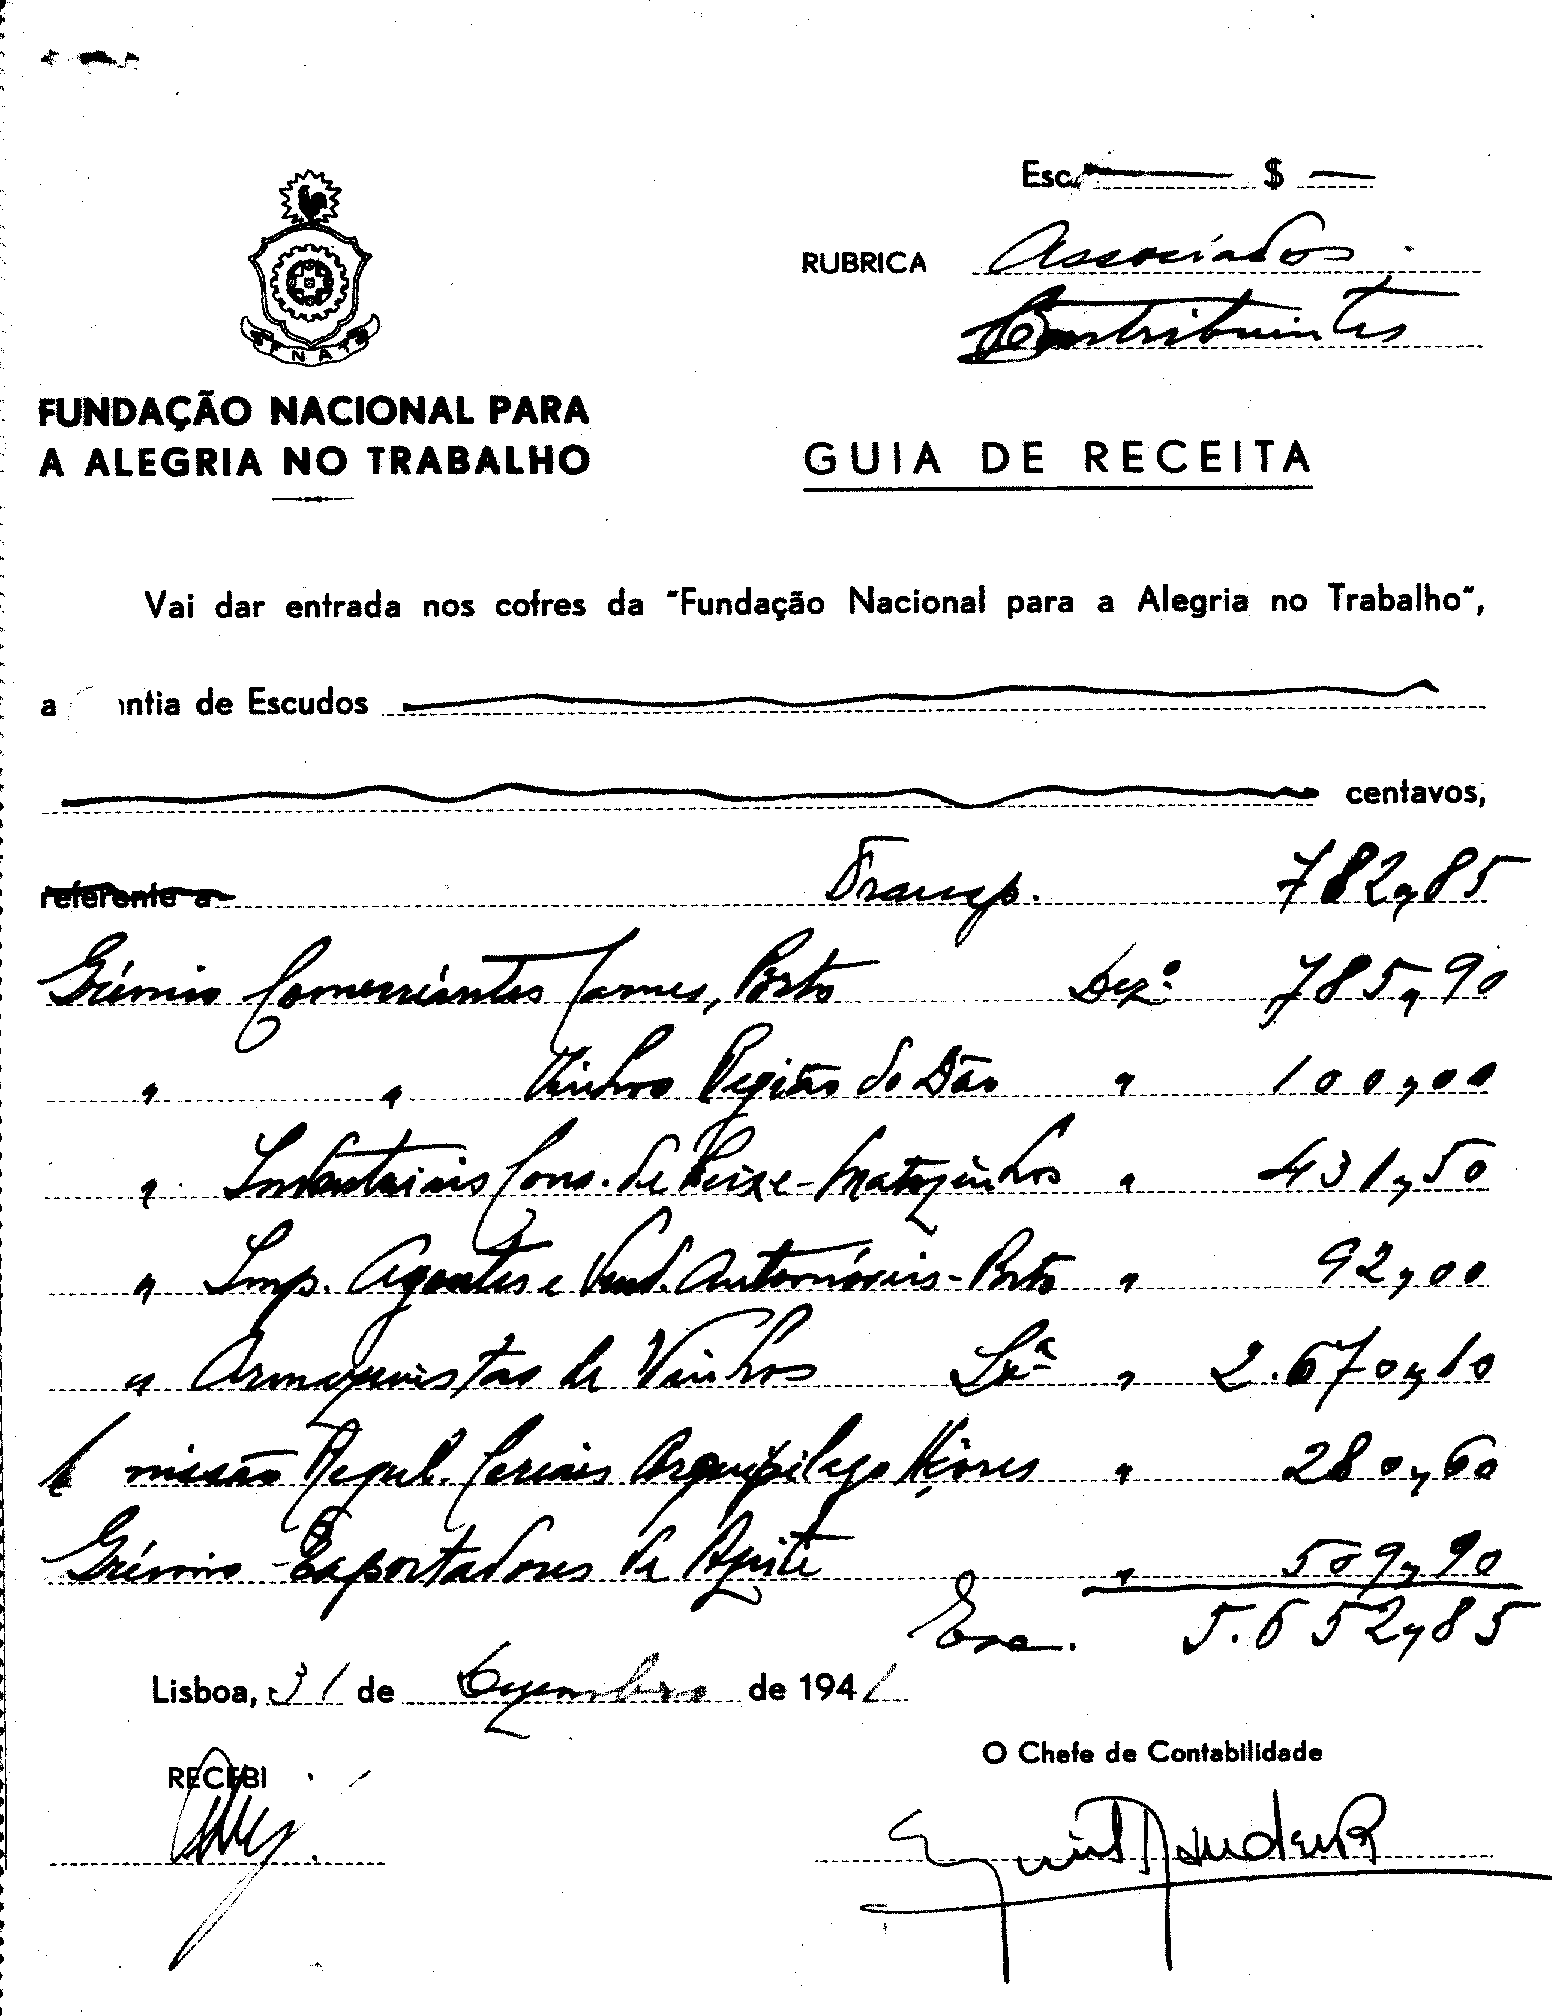 Esc. $
RUBRICA Associados
Contribuintes
FNAT
FUNDAÇÃO NACIONAL PARA
A ALEGRIA NO TRABALHO
GUIA DE RECEITA
Vai dar entrada nos cofres da "Fundação Nacional para a Alegria no Trabalho",
a ntia de Escudos
centavos,
referente a Transp. 782,85
Grémio Comerciantes Carnes, Porto Dezº 785,90
" " Vinhos Região do Dão " 100,00
" Industriais Cons. de Peixe - Matozinhos " 431,50
" Imp. Agentes e Vend. Automóveis - Porto " 92,00
" Armazenistas de Vinhos Lxª " 2.670,10
C missão Regul. Cereais Arquipélago Açores " 280,60
Grémio Exportadores de Azeite " 509,90
Esc. 5.652,85
Lisboa, 31 de Dezembro de 1941
RECEBI
O Chefe de Contabilidade